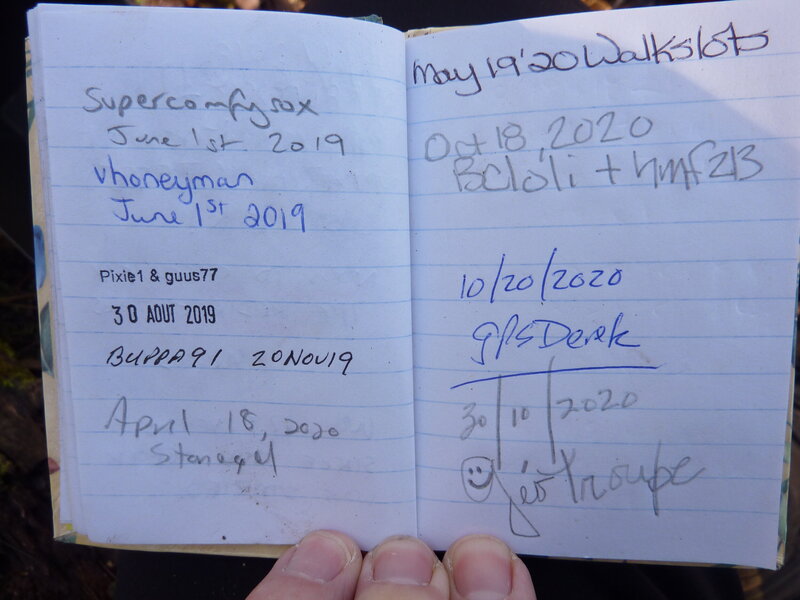 Supercomfysox
June 1st 2019
vhoneyman
June 1st 2019
Pixie1 & guus77
30 AOUT 2019
BUPPA91 20NOV19
April 18, 2020
May 19'20 Walkslots
Oct 18, 2020
BCloli + hmf213
10/20/2020
gpsDerek
30 | 10 | 2020
géoTroupe